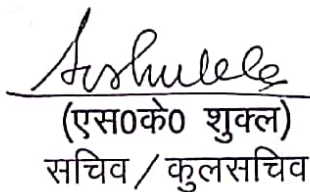 (एस0के0 शुक्ल)
सचिव / कुलसचिव